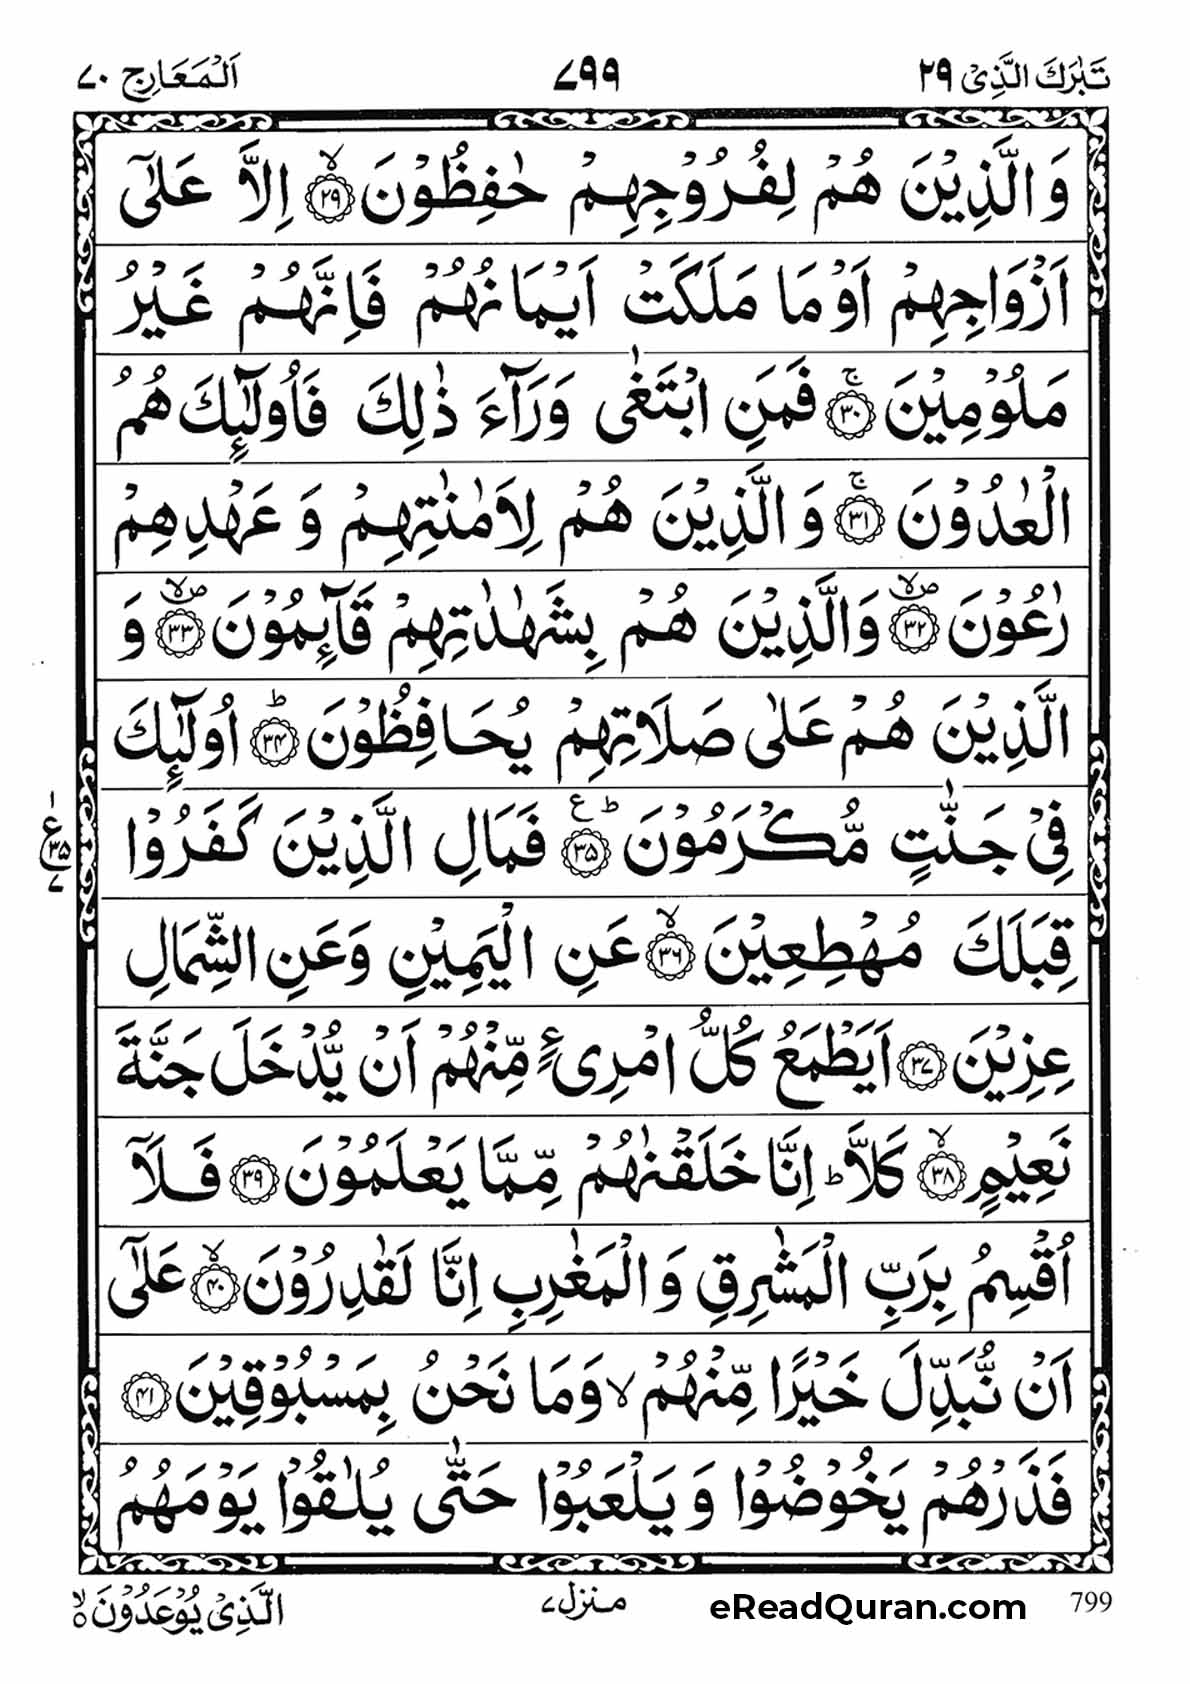 تَبٰرَكَ الَّذِیْ ۲۹
۷۹۹
اَلْمَعَارِج ۷۰
وَالَّذِیْنَ هُمْ لِفُرُوْجِهِمْ حٰفِظُوْنَ ۙ﴿۲۹﴾ اِلَّا عَلٰۤی
اَزْوَاجِهِمْ اَوْ مَا مَلَكَتْ اَیْمَانُهُمْ فَاِنَّهُمْ غَیْرُ
مَلُوْمِیْنَ ۚ﴿۳۰﴾ فَمَنِ ابْتَغٰی وَرَآءَ ذٰلِكَ فَاُولٰٓئِكَ هُمُ
الْعٰدُوْنَ ۚ﴿۳۱﴾ وَالَّذِیْنَ هُمْ لِاَمٰنٰتِهِمْ وَ عَهْدِهِمْ
رٰعُوْنَ ۪ۙ﴿۳۲﴾ وَالَّذِیْنَ هُمْ بِشَهٰدٰتِهِمْ قَآئِمُوْنَ ۪ۙ﴿۳۳﴾ وَ
الَّذِیْنَ هُمْ عَلٰی صَلَاتِهِمْ یُحَافِظُوْنَ ؕ﴿۳۴﴾ اُولٰٓئِكَ
فِیْ جَنّٰتٍ مُّكْرَمُوْنَ ؕ ع﴿۳۵﴾ فَمَالِ الَّذِیْنَ كَفَرُوْا
۱
ع
۳۵
۷
قِبَلَكَ مُهْطِعِیْنَ ۙ﴿۳۶﴾ عَنِ الْیَمِیْنِ وَعَنِ الشِّمَالِ
عِزِیْنَ ﴿۳۷﴾ اَیَطْمَعُ كُلُّ امْرِیٍٔ مِّنْهُمْ اَنْ یُّدْخَلَ جَنَّةَ
نَعِیْمٍ ۙ﴿۳۸﴾ كَلَّا ؕ اِنَّا خَلَقْنٰهُمْ مِّمَّا یَعْلَمُوْنَ ﴿۳۹﴾ فَلَاۤ
اُقْسِمُ بِرَبِّ الْمَشٰرِقِ وَالْمَغٰرِبِ اِنَّا لَقٰدِرُوْنَ ۙ﴿۴۰﴾ عَلٰۤی
اَنْ نُّبَدِّلَ خَیْرًا مِّنْهُمْ ۙ وَمَا نَحْنُ بِمَسْبُوْقِیْنَ ﴿۴۱﴾
فَذَرْهُمْ یَخُوْضُوْا وَ یَلْعَبُوْا حَتّٰی یُلٰقُوْا یَوْمَهُمُ
799
eReadQuran.com
منزل ۷
الَّذِیْ یُوْعَدُوْنَ ۙ۵